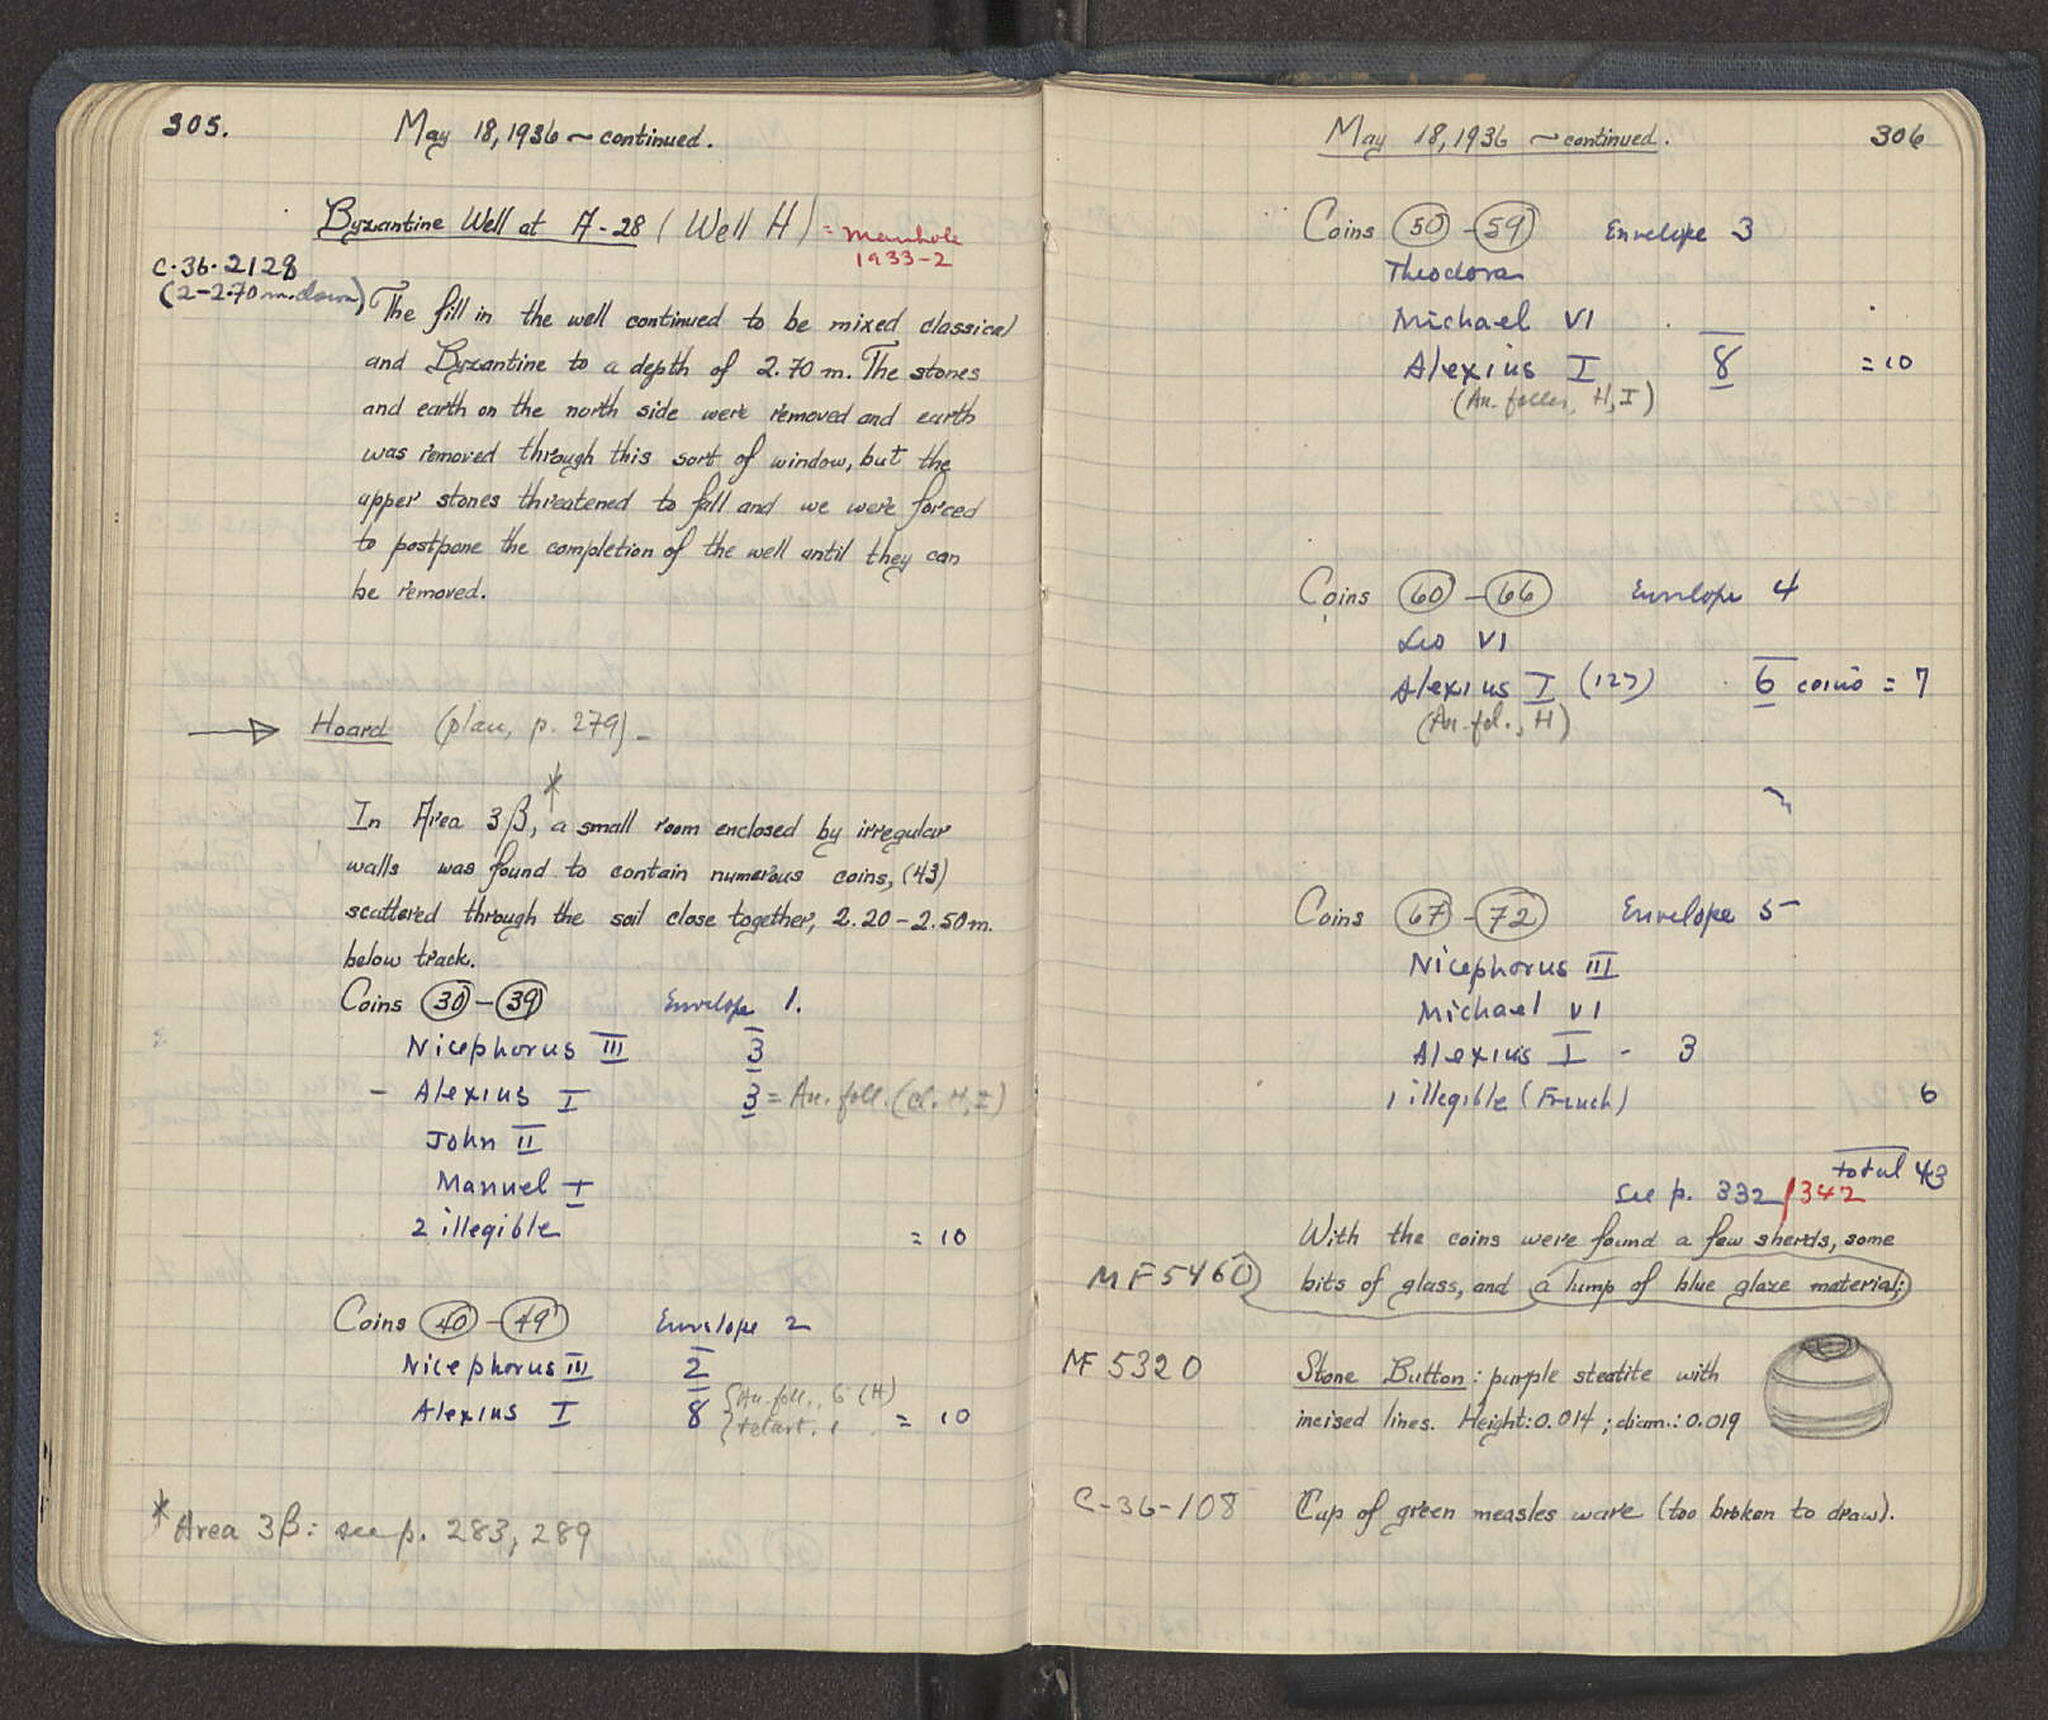 305.
May 18, 1936 ~ continued.
Byzantine Well at A-28 (Well H) = manhole
1933-2
C.36.2128
(2-2.70 m. down)
The fill in the well continued to be mixed classical
and Byzantine to a depth of 2.70 m. The stones
and earth on the north side were removed and earth
was removed through this sort of window, but the
upper stones threatened to fall and we were forced
to postpone the completion of the well until they can
be removed.
→ Hoard (plan, p. 279) -
*
In Area 3β, a small room enclosed by irregular
walls was found to contain numerous coins, (43)
scattered through the soil close together, 2.20-2.50 m.
below track.
Coins 30 - 39 Envelope 1.
Nicephorus III 3
- Alexius I 3 = An. foll. (cl. H, I)
John II
Manuel I
2 illegible = 10
Coins 40 - 49 Envelope 2
Nicephorus III 2
Alexius I 8 { An. foll., 6 (H)
tetart. 1 = 10
* Area 3β: see p. 283, 289
May 18, 1936 ~ continued.
306
Coins 50 - 59 Envelope 3
Theodora
Michael VI
Alexius I 8 = 10
(An. folles, H, I)
Coins 60 - 66 Envelope 4
Leo VI
Alexius I (12?) 6 coins = 7
(An. fol., H)
Coins 67 - 72 Envelope 5
Nicephorus III
Michael VI
Alexius I - 3
1 illegible (French) 6
total 43
see p. 332/342
With the coins were found a few sherds, some
MF 5460 bits of glass, and a lump of blue glaze material;
MF 5320 Stone Button: purple steatite with
incised lines. Height: 0.014; diam.: 0.019
C-36-108 Cup of green measles ware (too broken to draw).